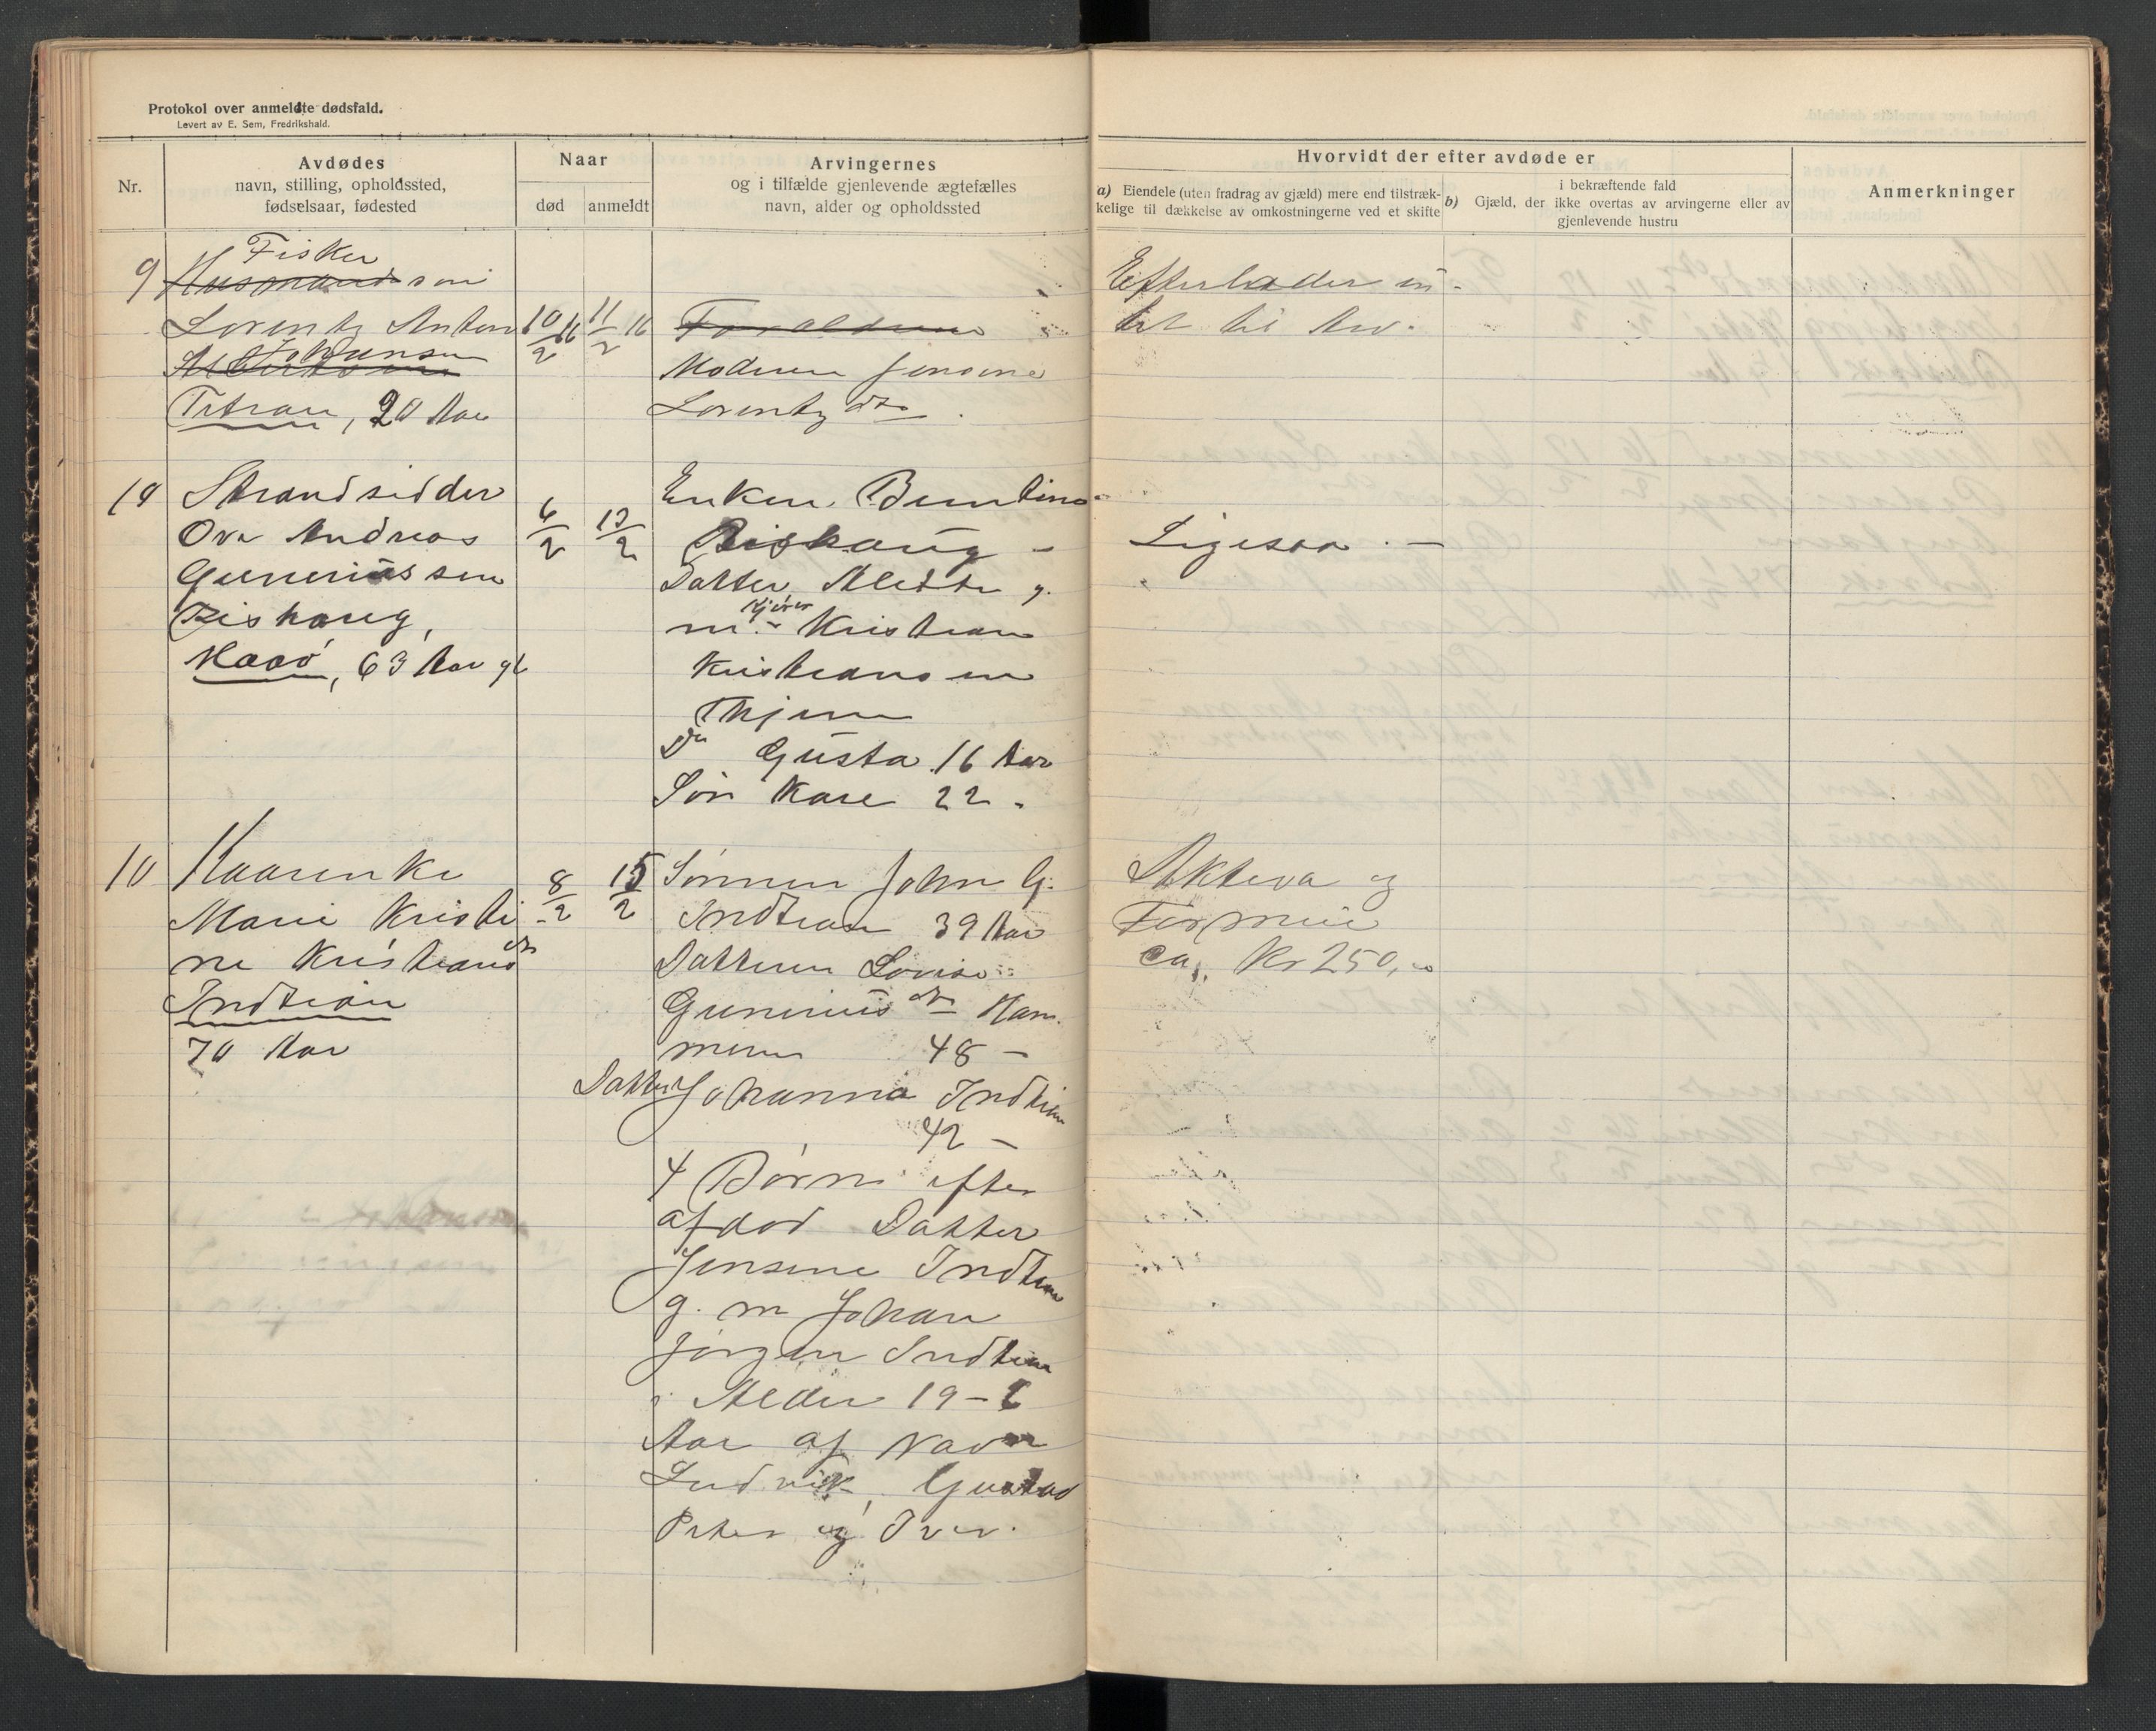 Protokol over anmeldte dødsfald.
Levert av E. Sem, Fredrikshald.
Nr.
Avdødes
navn, stilling, opholdssted,
fødselsaar, fødested
Naar
død
anmeldt
Arvingernes
og i tilfælde gjenlevende ægtefælles
navn, alder og opholdssted
Hvorvidt der efter avdøde er
a) Eiendele (uten fradrag av gjæld) mere end tilstræk-
kelige til dækkelse av omkostningerne ved et skifte
i bekræftende fald
b) Gjæld, der ikke overtas av arvingerne eller av
gjenlevende hustru
Anmerkninger
9
Fisker
Husmandssøn
Lorentz Anton
Johansen
Titran, 20 Aar
10/2 16
11/2 16
Forældrene
Moderen
Lorentzdtr
Efterlader in-
tet til Arv.
10
Strandsidder
Ove Andreas
Gunerius sen
Rishaug,
63 Aar gl
6/2
12/2
Enken
Rishaug -
Datter Alette g.
m. Kjører Kristian
Kristiansen
Do Gusta 16 Aar
Søn Kare 22 "
Ligesaa. -
10
Kaarenke
Marie Kristi
ne Kristiansdtr
Indtian
70 Aar
8/2
15/2
Sønnen John G.
Indtian 39 Aar
Datteren Lovise
Guneriusdtr Ham
48 -
Datter Johanna Indtian
42 -
4 Børn efter
afdød Datter
Jensine Indtian
g. m Johan
Jørgen Indtian
i Alder 19-6
Aar af Navn
Ludvik, Gustav
Peter og Iver.
Aktiva og
Formue
ca. Kr 250,00